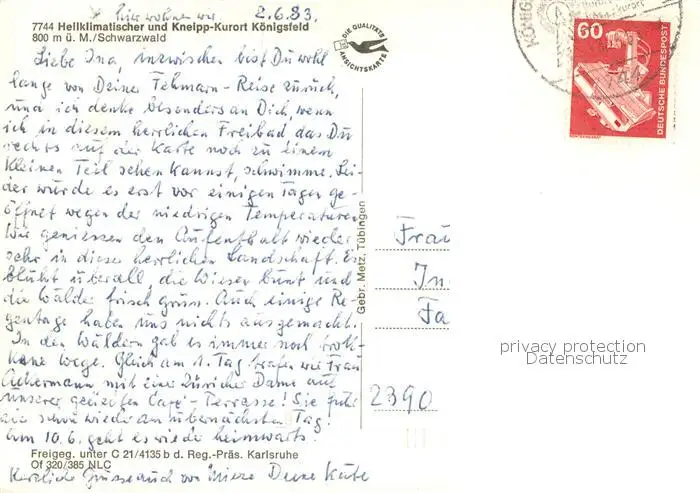 hier wohnen wir. 2.6.83.
7744 Heilklimatischer und Kneipp-Kurort Königsfeld
800 m ü. M./Schwarzwald
DIE QUALITÄTS
ANSICHTSKARTE
KÖNIG
60
DEUTSCHE BUNDESPOST
Liebe Ina, inzwischen bist Du wohl
lange von Deiner Fehmarn-Reise zurück,
und ich denke besonders an Dich, wenn
ich in diesem herrlichen Freibad das Du
rechts auf der Karte noch zu einem
kleinen Teil sehen kannst, schwimme. Lei-
der wurde es erst vor einigen Tagen ge-
öffnet wegen der niedrigen Temperaturen
Wir geniessen den Aufenthalt wieder
sehr in dieser herrlichen Landschaft. Es
blüht überall, die Wiesen bunt und
die Wälder frisch grün. Auch einige Re-
gentage haben uns nichts ausgemacht.
In den Wäldern gab es immer noch trok-
kene Wege. Gleich am 1. Tag trafen wir Frau
Ackermann mit einer Züricher Dame auf
unserer geliebten Café-Terrasse! Sie
schon wieder am übernächsten Tag!
Am 10.6. geht es wieder heimwärts.
Freigeg. unter C 21/4135 b d. Reg.-Präs. Karlsruhe
Of 320/385 NLC
Herzliche Grüsse auch von Deine Käte
Gebr. Metz, Tübingen
Frau
In
Fa
2390
privacy protection
Datenschutz